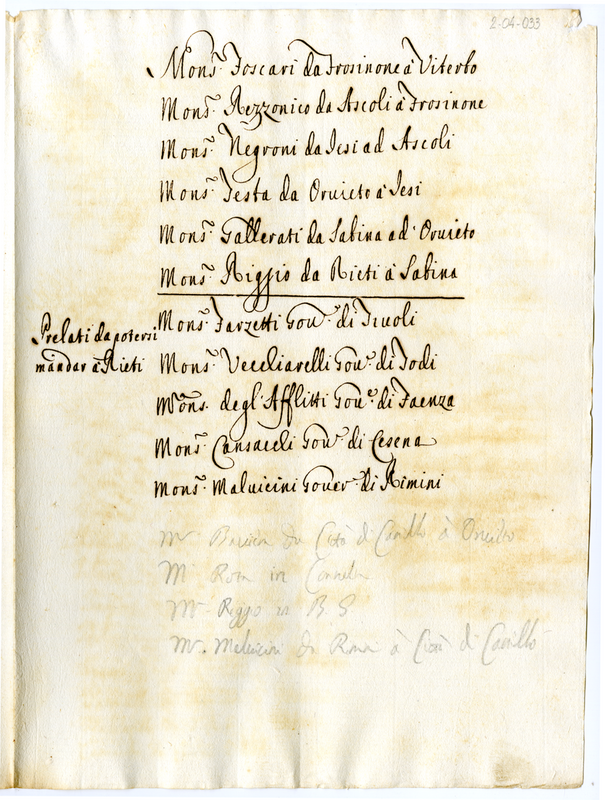 2-04-033
Mons.r Foscari da Frosinone à Viterbo
Mons.r Rezzonico da Ascoli à Frosinone
Mons.r Negroni da Iesi ad Ascoli
Mons.r Testa da Oruieto à Iesi
Mons.r Gallerati da Sabina ad Oruieto
Mons.r Riggio da Rieti à Sabina
Prelati da potersi
mandar à Rieti
Mons.r Farzetti Gou.re di Tiuoli
Mons.r Vecchiarelli Gou.re di Todi
Mons.r degl'Afflitti Gou.re di Faenza
Mons.r Cansacchi Gou.re di Cesena
Mons.r Maluicini Gouer.re di Rimini
Mr da Città di Castello à Oruieto
Mr Rota in
Mr Riggio in B G
Mr. Maluicini da Rimi à Città di Castello